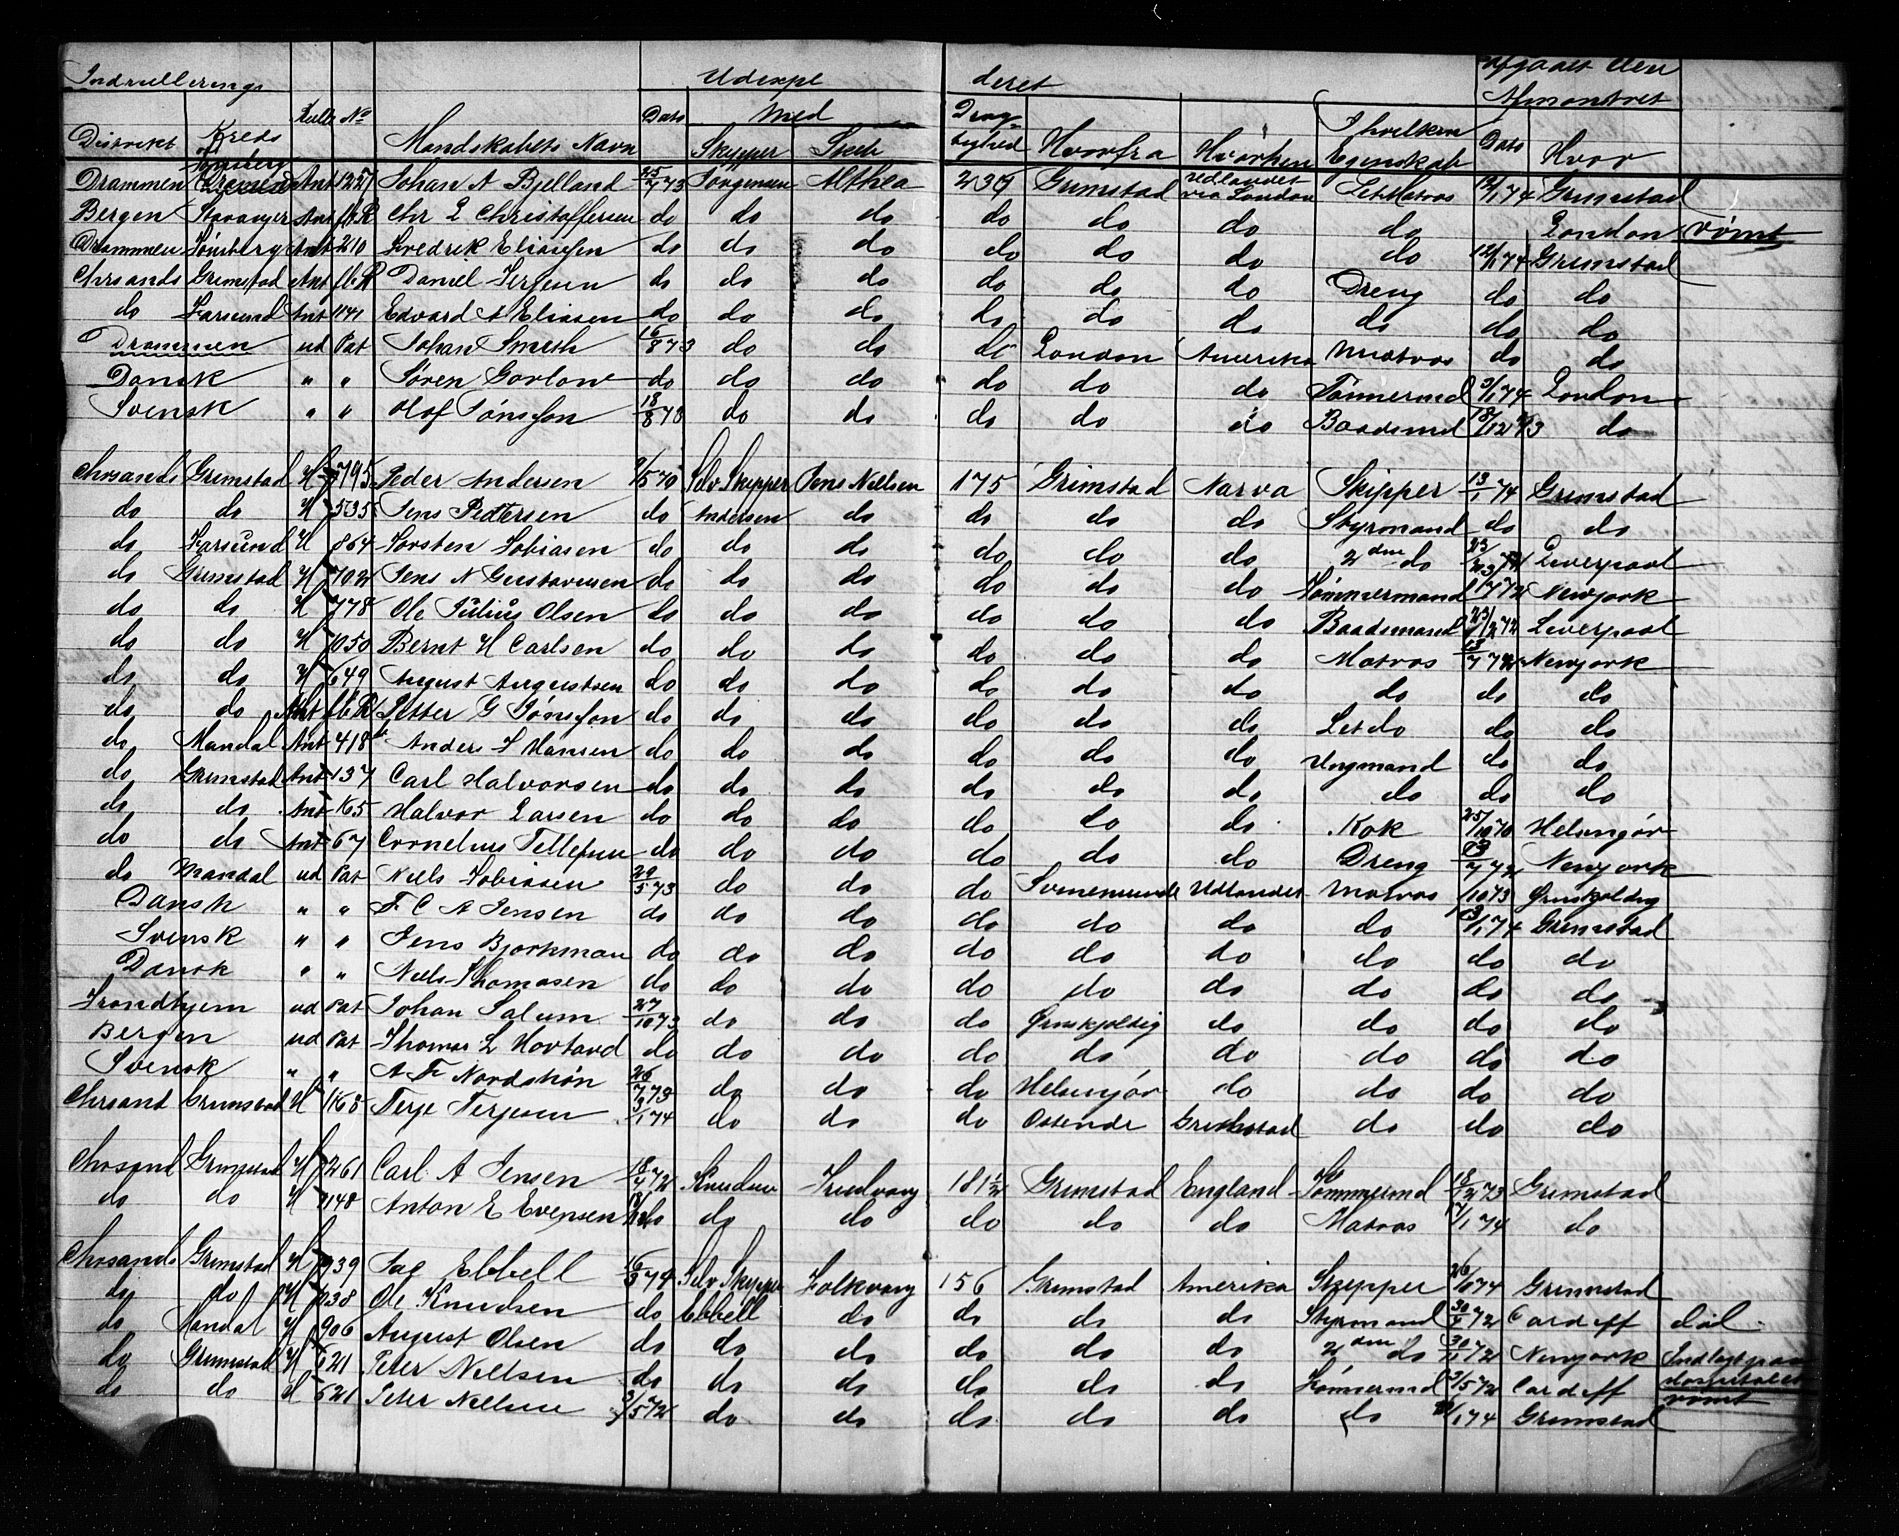 Indrullerings Udexpe deret Afgaaet den
Rulle No Dato Med Dræg- Ihvilken Afmønstret
Distrikt Kreds Mandskabets Navn Skipper Skib tighed Hvorfra Hvorhen Egenskab Dato Hvor
Drammen Tønsberg Ant 1227 Johan A Bjelland 25/7 73 Jørgensen Althea 239 Grimstad Udlandet via London Let Matros 12/1 74 Grimstad
Bergen Stavanger Ant fb.R Chr L Christoffersen do do do do do do do London rømt
Drammen Tønsberg Ant 210 Fredrik Eliassen do do do do do do do 12/1 74 Grimstad
Chrsands Grimstad Ant fb.R Daniel Terjesen do do do do do do Dreng do do
do Farsund Ant 1141 Edvard A Eliasen do do do do do do do do do
Drammen ud Pat Johan Smith 16/8 73 do do do London Amerika Matros do do
Dansk " " Søren Gorlow do do do do do do Tømmermd 3/1 74 London
Svensk " " Olof Jönsson 18/8 73 do do do do do Baadsmd 18/12 73 do
Chrsands Grimstad H 795 Peder Andersen 2/5 70 Selv Skipper Jens Nielsen 175 Grimstad Narva Skipper 13/1 74 Grimstad
do do H 535 Jens Pedtersen do Andersen do do do do Styrmand do do
do Farsund H 864 Torsten Tobiasen do do do do do do 2den do Liverpool
do Grimstad H 702 Jens N Gustavesen do do do do do do Tømmermand 17/7 72 Newjork
do do H 778 Ole Julius Olsen do do do do do do Baadsmand 23/12 72 Liverpool
do do H 1050 Bernt H Carlsen do do do do do do Matros 13/7 72 Newjork
do do H 649 August Augustsen do do do do do do do do do
do do Ant fb.R Petter G Jönsson do do do do do do Let do do do
do Mandal Ant 418 Anders S Hansen do do do do do do Ungmand do do
do Grimstad Ant 137 Carl Halvorsen do do do do do do do do do
do do Ant 165 Halvor Larsen do do do do do do Kok 25/10 70 Helsingør
do do Ant 67 Cornelius Tellefsen do do do do do do Dreng 13/7 72 Newjork
do Mandal ud Pat Niels Tobiasen 29/5 73 do do do Svinemunde Udlandet Matros 1/10 73 Ørnskjoldvig
Dansk " " F C A Jensen do do do do do do do 13/1 74 Grimstad
Svensk " " Jens Bjorkman do do do do do do do do do
Dansk " " Niels Thomasen do do do do do do do do do
Trondhjem ud Pat Johan Salum 27/10 73 do do do Ørnskjoldvig do do do do
Bergen ud Pat Thomas L Hovland do do do do do do do do do
Svensk " " A F Nordström 26/7 73 do do do Helsingør do do do do
Chrsand Grimstad H 1168 Terje Terjesen 3/1 74 do do do Ostende Grimstad do do do
Chrsand Grimstad H 1261 Carl A Jensen 18/4 72 Knudsen Fredvang 181½ Grimstad England Tømmermd 18/12 73 Grimstad
do do H 1148 Anton E Evensen do do do do do do Matros 17/1 74 do
Chrsands Grimstad H 939 Jag Ebbell 16/3 74 Selv Skipper Folkvang 156 Grimstad Amerika Skipper 26/1 74 Grimstad
do do H 1038 Ole Knudsen do Ebbell do do do do Styrmand 30/ 72 Cardiff Död
do Mandal H 906 August Olsen do do do do do do 2den do 30/11 72 Newjork Indlagt paa
do Grimstad H 621 Peter Nielsen do do do do do do Tømmermd 2/5 72 Cardiff Hospitalet rømt
do do H 621 Peter Nielsen 3/5 72 do do do do do do 2/1 74 Grimstad